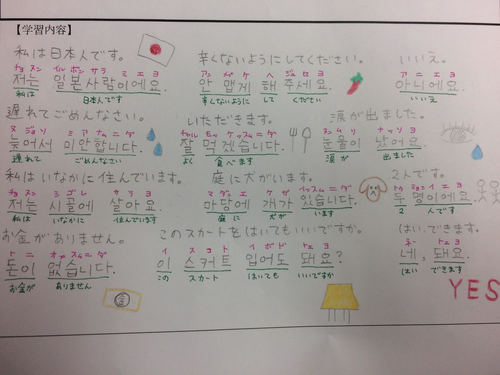 【学習内容】
私は日本人です。
チョヌン イルボンサラミエヨ
저는 일본사람이에요.
私は 日本人です
辛くないようにしてください。
アンメプケ ヘ ジュセヨ
안 맵게 해 주세요.
辛くないように して ください
いいえ。
アニエヨ
아니에요.
いいえ
遅れてごめんなさい。
ヌジョソ ミアナムニダ
늦어서 미안합니다.
遅れて ごめんなさい
いただきます。
チャル モッケッスムニダ
잘 먹겠습니다.
よく 食べます
涙が出ました。
ヌンムリ ナッソヨ
눈물이 났어요.
涙が 出ました
私はいなかに住んでいます。
チョヌン シゴレ サラヨ
저는 시골에 살아요.
私は いなかに 住んでいます
庭に犬がいます。
マダンエ ケガ イッスムニダ
마당에 개가 있습니다.
庭に 犬が います
2人です。
トゥ ミョンイエヨ
두 명이에요.
2 人です
お金がありません。
トニ オプスムニダ
돈이 없습니다.
お金が ありません
このスカートをはいてもいいですか。
イ スコトゥ イボド トェヨ
이 스커트 입어도 돼요?
この スカート はいても いいですか
はい、できます。
ネ トェヨ
네, 돼요.
はい できます
YES